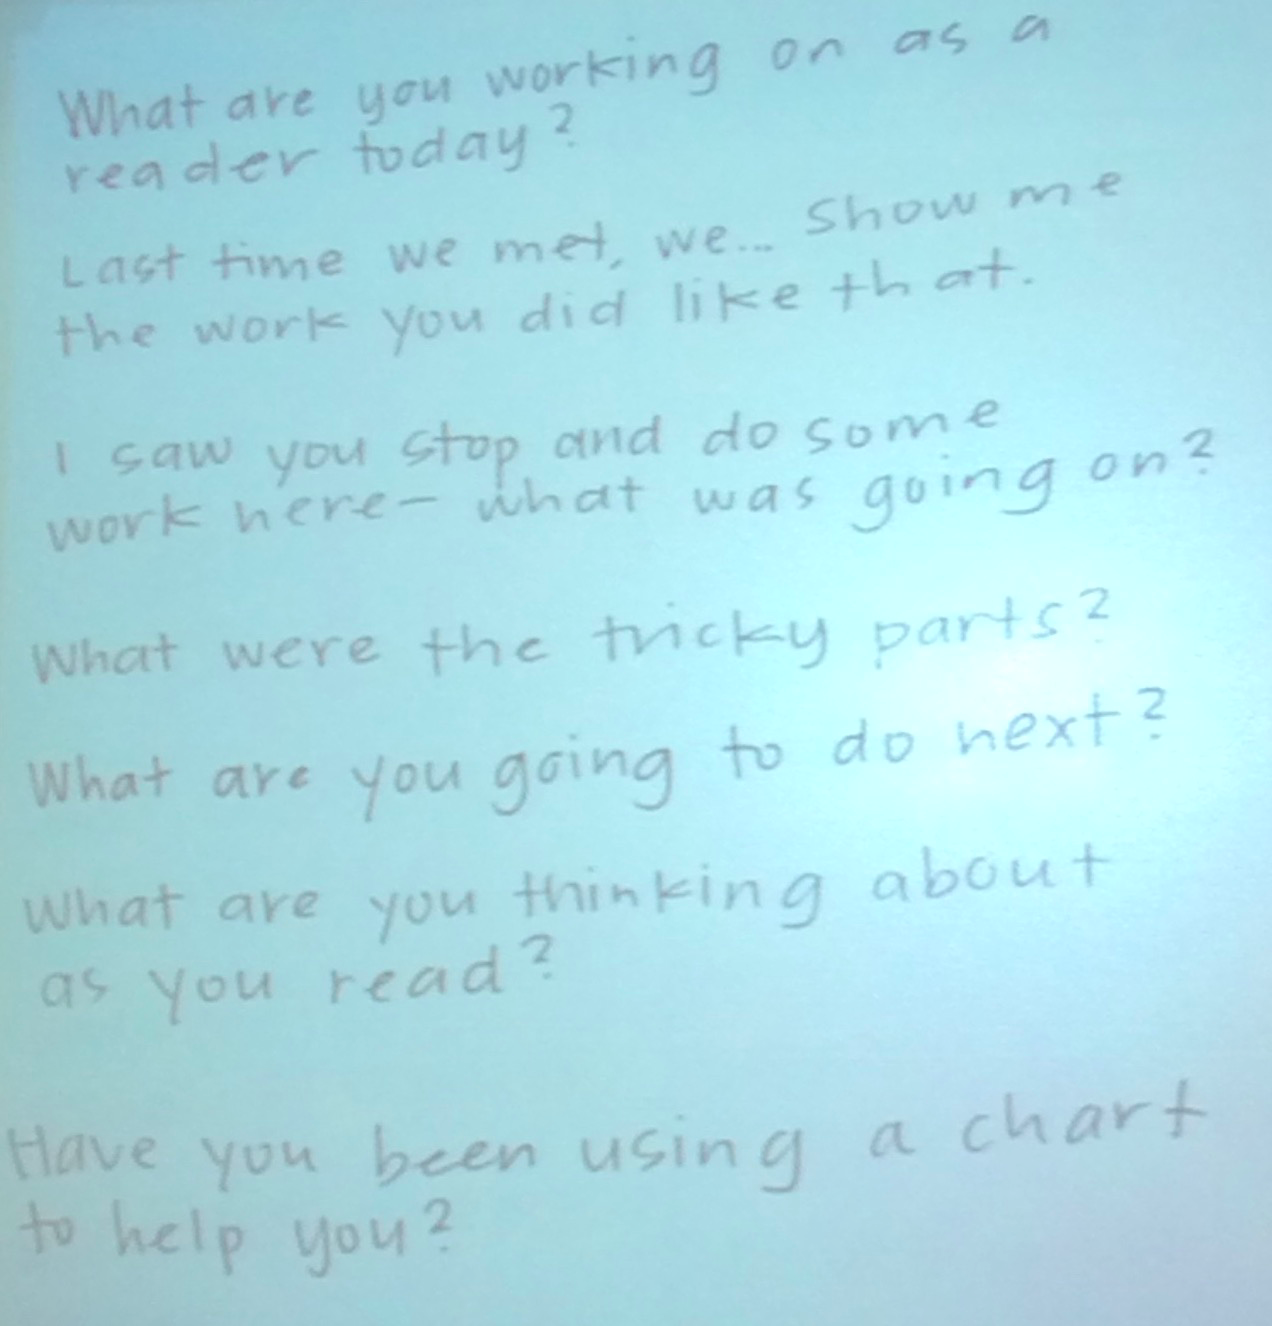 What are you working on as a
reader today?
Last time we met, we... Show me
the work you did like that.
I saw you stop and do some
work here- what was going on?
What were the tricky parts?
What are you going to do next?
What are you thinking about
as you read?
Have you been using a chart
to help you?